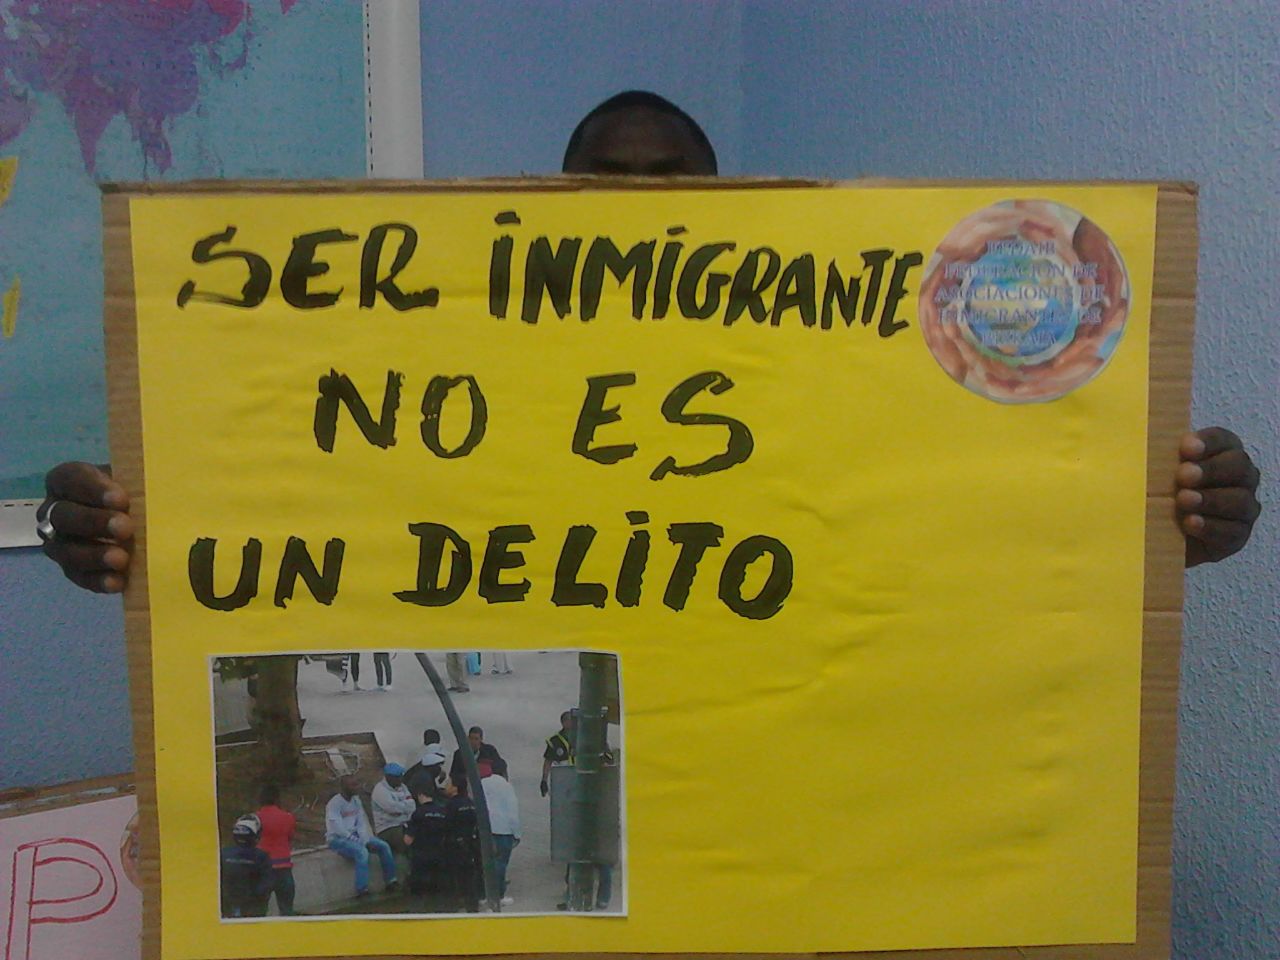 SER INMIGRANTE
NO ES
UN DELITO
FEDERACIÓN DE
ASOCIACIONES DE
INMIGRANTES DE
BIZKAIA
P